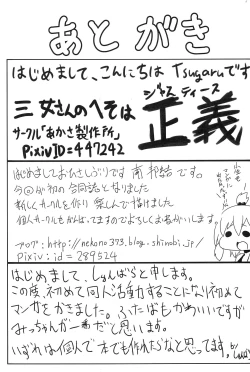 あとがき
はじめまして、こんにちは Tsugaruです
三女さんのへそは
ジャスティース
正義
サークル「あかさ製作所」
Pixiv ID=447242
はじめましておひさしぶりです 南 です。
今回が初の合同誌となりました
新しくサークルを作り 楽しんで描けました
個人サークルもがんばってますのでよろしくお願いします
ブログ: http://nekono373.blog.shinobi.jp/
Pixiv: id = 289524
はじめまして、しゅんぱらと申します。
この度、初めて同人活動することになり初めて
マンガをかきました。ふたばもかわいいですが
みっちゃんが一番だと思います。
いずれは個人で本でも作れたらなと思ってます。